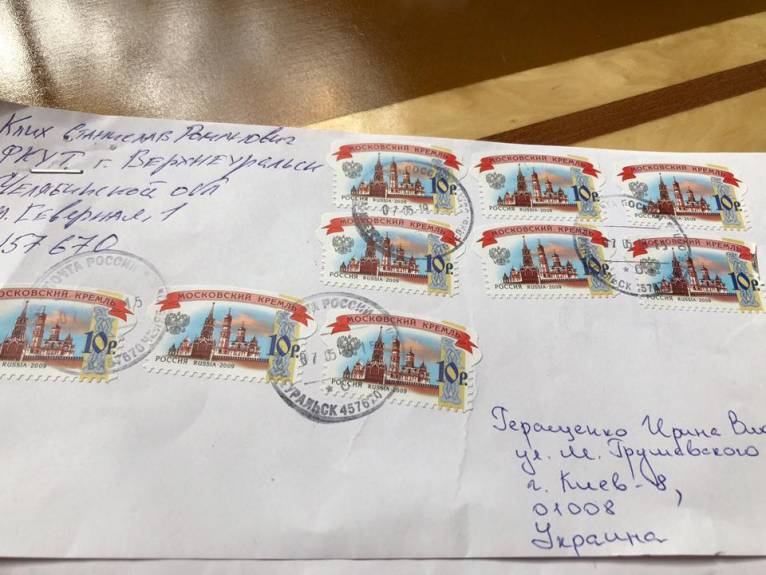 Клих Станислав Романович
ФКУ Т г. Верхнеуральск
Челябинской обл
Северная, 1
457670
МОСКОВСКИЙ КРЕМЛЬ
10 р.
РОССИЯ RUSSIA·2009
07 05
МОСКОВСКИЙ КРЕМЛЬ
10 р.
РОССИЯ RUSSIA·2009
МОСКОВСКИЙ КРЕМЛЬ
10 р.
РОССИЯ RUSSIA·2009
МОСКОВСКИЙ КРЕМЛЬ
10 р.
РОССИЯ RUSSIA·2009
МОСКОВСКИЙ КРЕМЛЬ
10 р.
РОССИЯ RUSSIA·2009
МОСКОВСКИЙ КРЕМЛЬ
10 р.
РОССИЯ RUSSIA·2009
ПОЧТА РОССИИ
МОСКОВСКИЙ КРЕМЛЬ
10 р.
RUSSIA·2009
457670
МОСКОВСКИЙ КРЕМЛЬ
10 р.
РОССИЯ RUSSIA·2009
ПОЧТА РОССИИ
07 05
УРАЛЬСК 457670
МОСКОВСКИЙ КРЕМЛЬ
10 р.
РОССИЯ RUSSIA·2009
Геращенко Ирина
ул. М. Грушевского
г. Киев-8,
01008
Украина